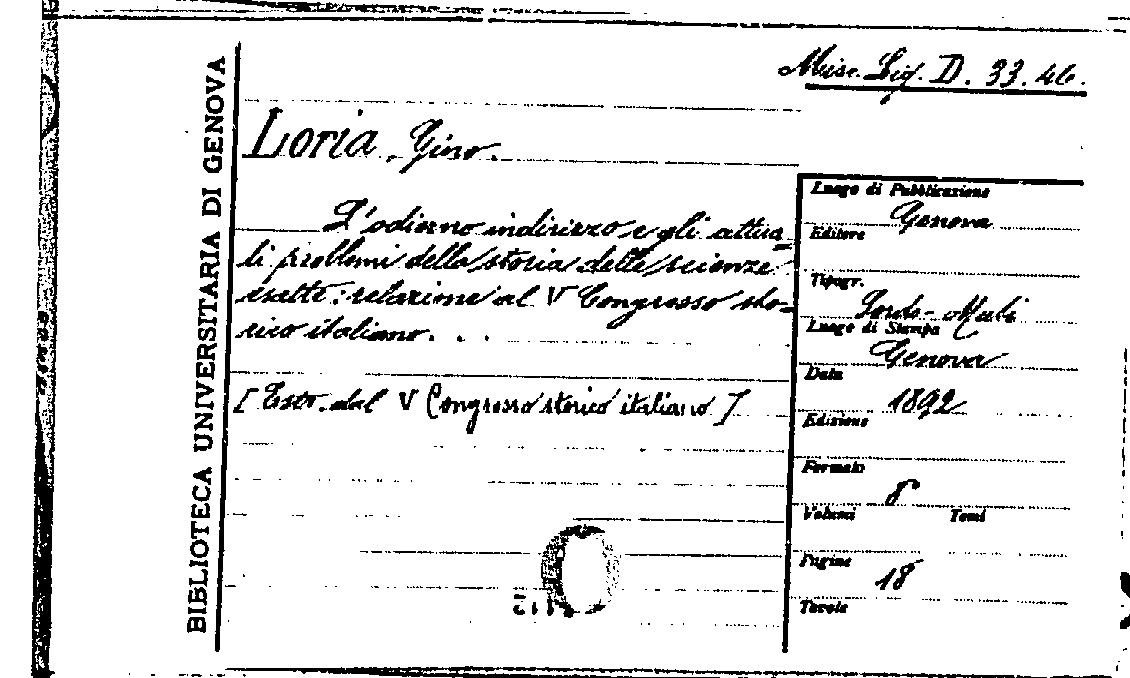 BIBLIOTECA UNIVERSITARIA DI GENOVA
Misc. Lig. D. 33. 46.
Loria, Gino.
L'odierno indirizzo e gli attua=
li problemi della storia delle scienze
esatte: relazione al V Congresso sto=
rico italiano. . .
[Estr. dal V Congresso storico italiano]
Luogo di Pubblicazione
Genova
Editore
Tipogr.
Sordo-Muti
Luogo di Stampa
Genova
Data
1892
Edizione
Formato
8°
Volumi Tomi
Pagine
18
Tavole